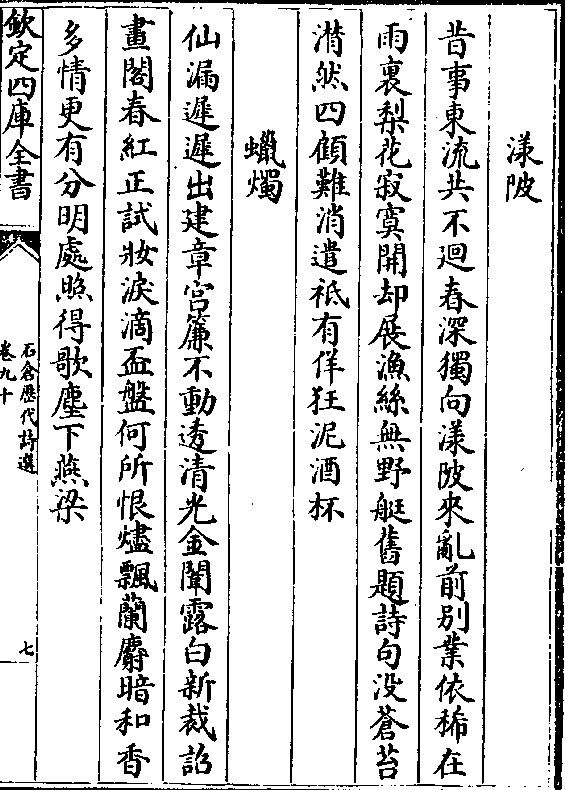 漾陂
昔事東流共不迴春深獨向漾陂來亂前別業依稀在
雨裏梨花寂寞開却展漁絲無野艇舊題詩句没蒼苔
潸然四顧難消遣祗有佯狂泥酒杯
蠟燭
仙漏遲遲出建章宫簾不動透清光金闈露白新裁詔
畫閣春紅正試妝淚滴盃盤何所恨燼飄蘭麝暗和香
多情更有分明處照得歌塵下燕梁
欽定四庫全書
石倉歷代詩選
卷九十
七